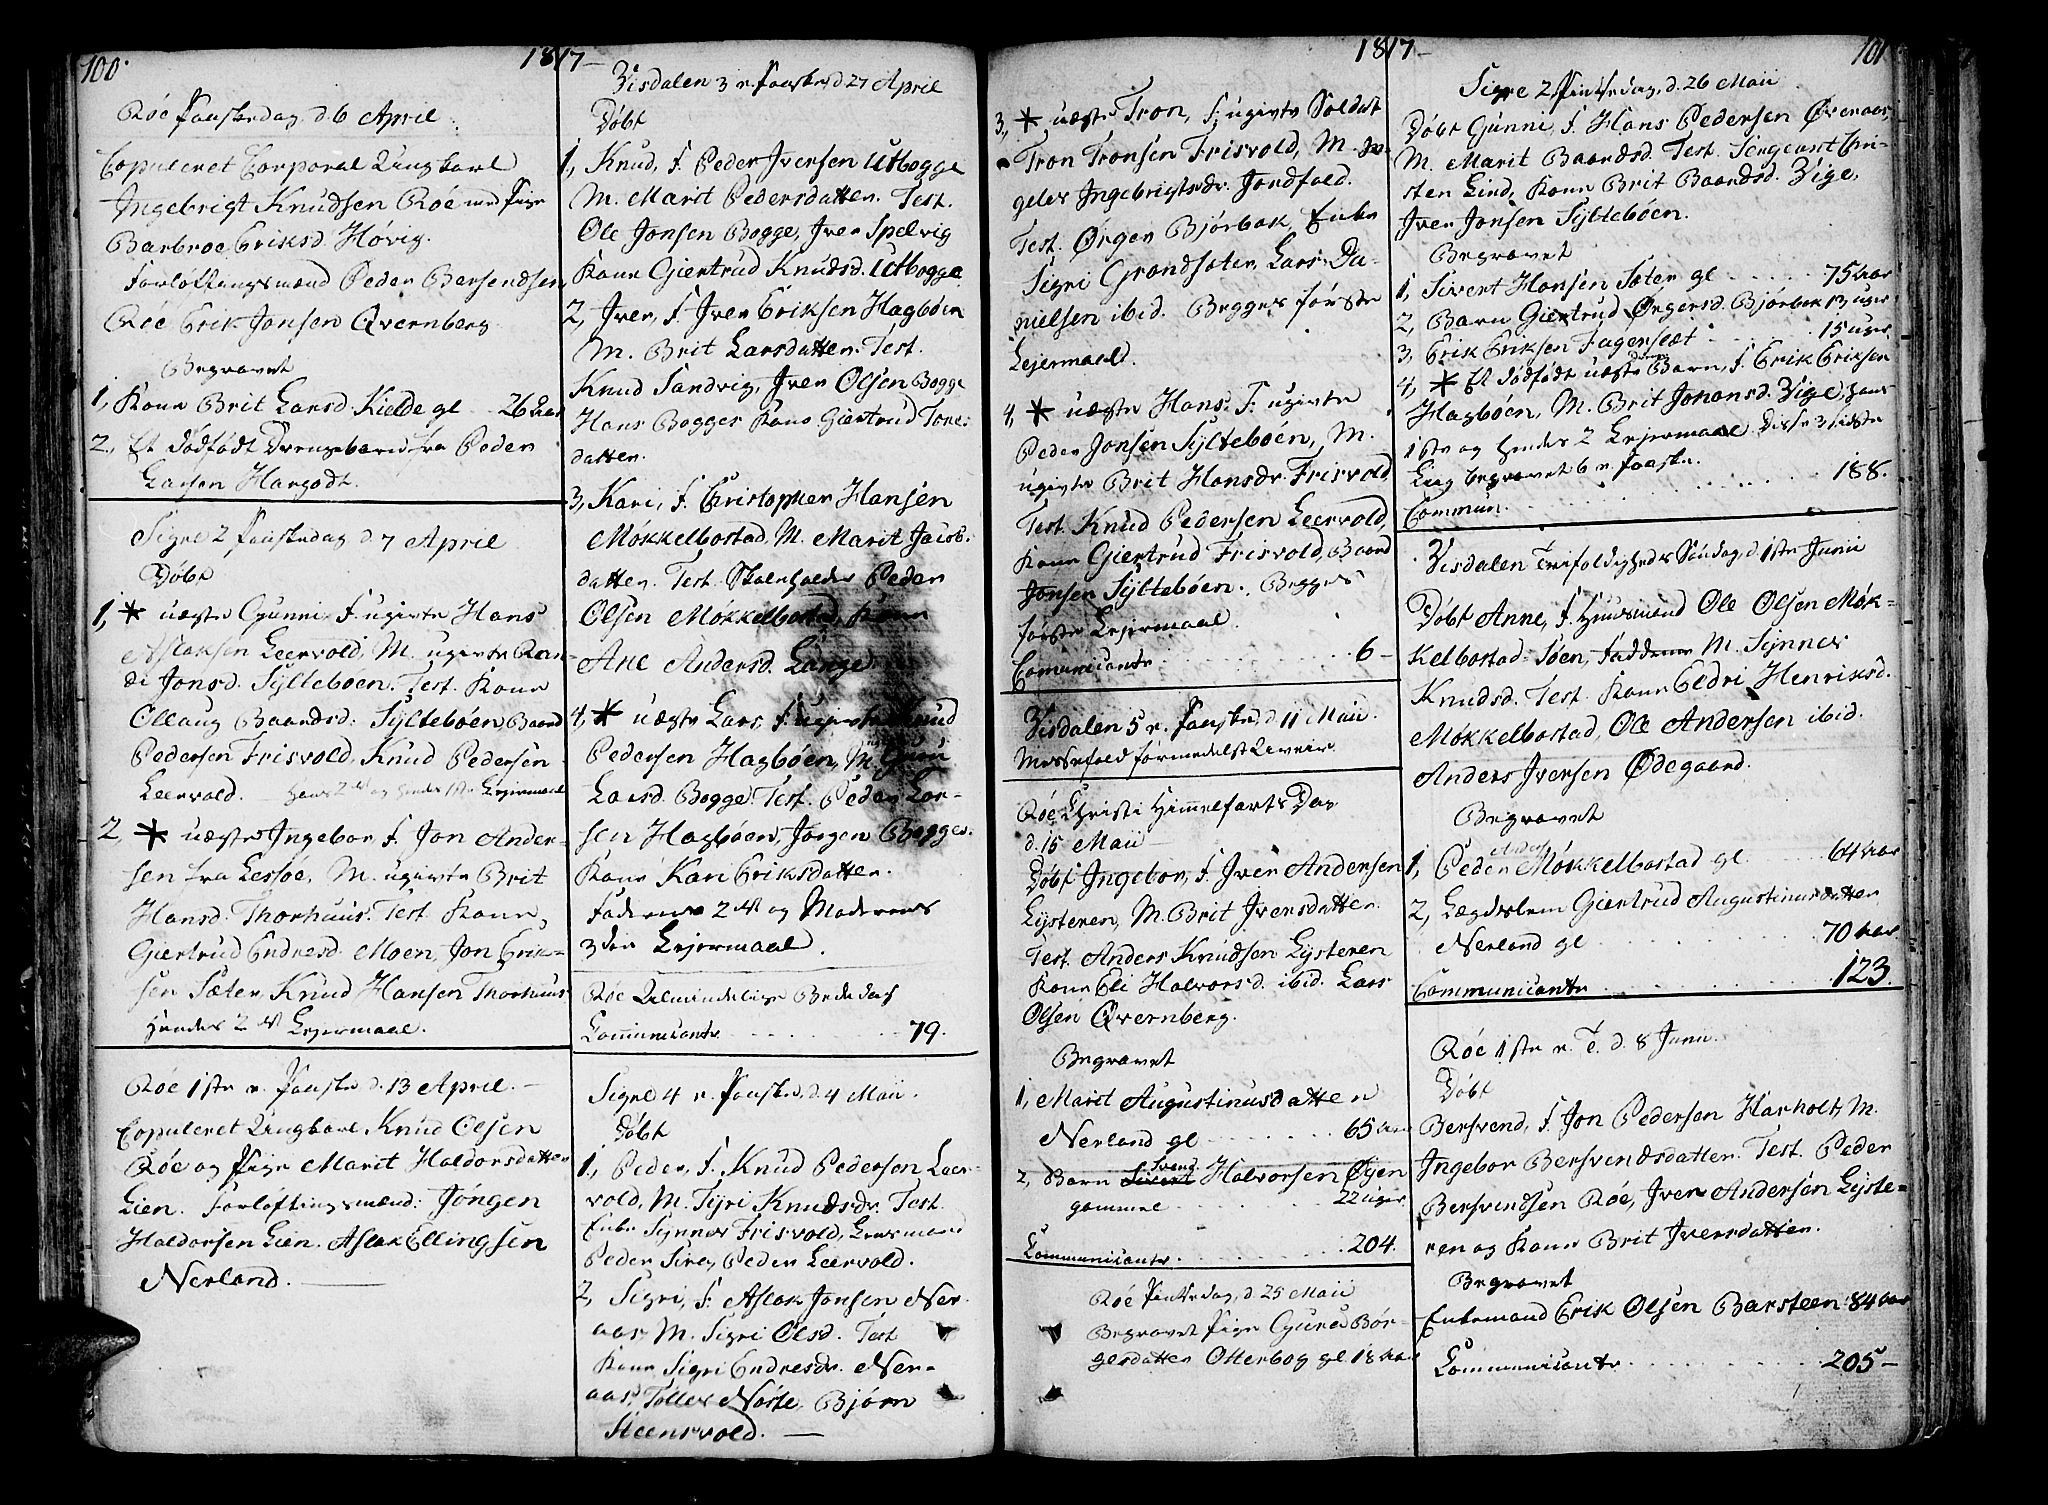 100.
1817-
Røe Paaskedag d 6 April.
Copuleret Corporal Ungkarl
Ingebrigt Knudsen Røe med Pige
Barbroe Eriksd. Høvig.
Forløftingsmænd Peder Bersendsen
Røe Erik Jonsen Qvernberg.
Begravet
1, Kone Brit Larsd. Kielde gl - 26 aar
2, Et dødfødt Drengebarn fra Peder
Larsen Hargodt.
Sigre 2 Paaskedag d. 7 April
Døbt
1, * uægte Gunni, F. ugivte Hans
Aslaksen Leervold, M. ugivte Ran-
di Jonsd. Sylteboen. Test. Kone
Ollaug Baardsd. Sylteböen, Baard
Pedersen Frisvold, Knud Pedersen
Leervold. Hans 2det og hendes 1ste Lejermaal
2, * uægte Ingebor, F. Jon Ander-
sen fra Lessøe, M. ugivte Brit
Hansd. Thorhuus. Test Kone
Giertrud Endresd. Moen, Jon Erik-
sen Sæter, Knud Hansen Thorhuus
Hendes 2det Lejermaal.
Røe 1ste e. Paaske d. 13 April. -
Copuleret Ungkarl Knud Olsen
Røe og Pige Marit Haldorsdatter
Lien. Forløftingsmænd: Jørgen
Haldorsen Lien. Aslak Ellingsen
Nerland.
Visdalen 3 e. Paaske d 27 April
Døbt
1, Knud, F. Peder Iversen Utbogge
M. Marit Pedersdatter. Test.
Ole Jonsen Bogge, Iver Spelvig
Kone Giertrud Knudsd. Utbogge
2, Iver, F. Iver Eriksen Hagbøen
M. Brit Larsdatter. Test.
Knud Sandvig, Iver Olsen Bogge
Hans Bogges Kone Giertrud Tore-
datter.
3, Kari, F. Christopher Hansen
Møkkelbostad, M. Marit Jacob-
datter. Test. Skoleholder Peder
Olsen Møkkelbostad, Kone
Ane Andersd. Lange.
4, * uægte Lars, F. ugivte Knud
Pedersen Hagbøen, M. Guru
Larsd. Bogge. Test. Peder Lar-
sen Hagbøen, Jørgen Bogges
Kone Kari Eriksdatter.
Faderens 2det og Moderens
3die Lejermaal.
Røe Almindelige Bededag
Communicante - 79.
Sigre 4 e. Paaske, d. 4 Maii.
Døbt
1, Peder, F. Knud Pedersen Leer-
vold, M. Syri Knudsdr. Test.
Enke Synnev Frisvold, Lensmand
Peder Sire, Peder Leervold.
2, Sigri, F. Aslak Jonsen Ner-
aas M. Sigri Olsd. Test
Kone Sigri Endresdr. Ner-
aas, Tolles Nøste, Bjørn
Steensvold. -
1817-
101
3, * uægte Tron, F. ugivte Soldat
Tron Tronsen Frisvold, M. In-
geles Ingebrigtsdr. Jordfald.
Test. Ørger Bjørbak, Enke
Sigri Grandsæter, Lars Da-
nielsen ibid. Begges første
Lejermaal.
4, * uægte Hans. F. ugivte
Peder Jonsen Sylteböen, M.
ugivte Brit Hansdr. Frisvold
Test. Knud Pedersen Leervold,
Kone Giertrud Frisvold, Baard
Jonsen Sylteböen. Begges
første Lejermaal.
Comunicante 6 -
Visdalen 5 e. Paaske, d. 11 Maii.
Messefald formedelst Uveir
Røe Christi Himmelfarts Dag
d. 15 Maii
Døbt Ingebor, F. Iver Andersen
Lysteren, M. Brit Iversdatter.
Test. Anders Knudsen Lysteren
Kone Eli Halvorsd. ibid. Lars
Olsen Qvernberg.
Begravet
1, Marit Augustinusdatter
Nerland gl 65 aar
2, Barn Sivert Svend Halvorsen Øyen
gammel 22 uger
Communicante 204.
Røe Pintsedag, d. 25 Maii
Begravet Pige Guru Bør-
gesdatter Otterbog gl 18 aar
Sigre 2 Pintsedag, d. 26 Maii
Døbt Gunni, F. Hans Pedersen Øveraas
M. Marit Baardsd. Test. Sergeant Chri-
sten Lind, Kone Brit Baardsd. Vige,
Iver Jonsen Sylteböen.
Begravet
1, Sivert Hansen Sæter gl 75 aar
2, Barn Giertrud Ørgersd. Bjørbak 13 uger
3, Erik Eriksen Fagerslæt 15 uger
4, * Et dødfødt uægte Barn, F. Erik Eriksen
Hagbøen, M. Brit Johansd. Vige, hans
1ste og hendes 2 Lejermaal. Disse 3 sidste
Liig begravet 6 e. Paaske.
Commun. 188.
Visdalen Trefoldigheds Søndag, d 1ste Junii
Døbt Anne, F. Huusmand Ole Olsen Møk-
kelbostad-Søen, M. Synnev
Knudsd. Test. Kone Eldri Henriksd.
Møkkelbostad, Ole Andersen ibid.
Anders Iversen Ødegaard.
Begravet
1, Peder Møkkelbostad gl 64 aar
2, Lægdslem Giertrud Augustinusdatter
Nerland gl 70 aar.
Communicante 123.
Røe 1ste e. T. d. 8 Junii.
Døbt
Bersvend, F. Jon Pedersen Harholt, M.
Ingebor Bersvendsdatter. Test. Peder
Bersvendsen Røe, Iver Andersen Lyste-
ren og Kone Brit Iversdatter.
Begravet
Enkemand Erik Olsen Barsteen 84 aar
Communicante 205-